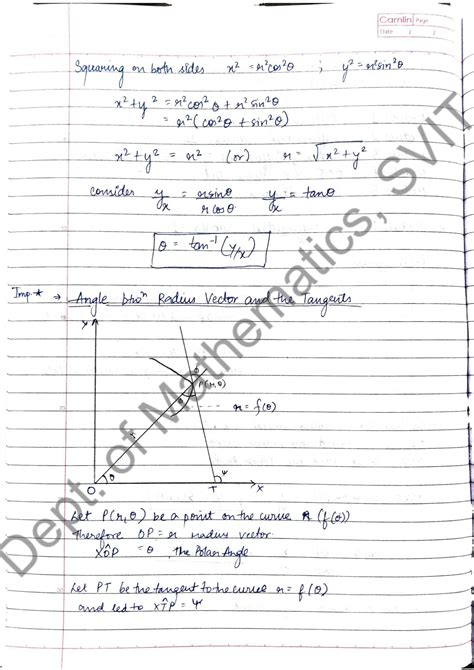 Camlin Page
Date / /
Squaring on both sides x² = r²cos²θ ; y² = r²sin²θ
x² + y² = r²cos²θ + r²sin²θ
= r²(cos²θ + sin²θ)
x² + y² = r² (or) r = √x² + y²
consider y/x = r sinθ / r cosθ y/x = tanθ
θ = tan⁻¹(y/x)
Imp * → Angle btwⁿ Radius Vector and the Tangents
Y
Φ
P(r, θ)
Φ
r = f(θ)
r
θ
Ψ
O T X
Let P(r, θ) be a point on the curve r (f(θ))
Therefore OP = r radius vector
XÔP = θ The Polar Angle
Let PT be the tangent to the curve r = f(θ)
and led to XT̂P = Ψ
Dept. of Mathematics, SVIT